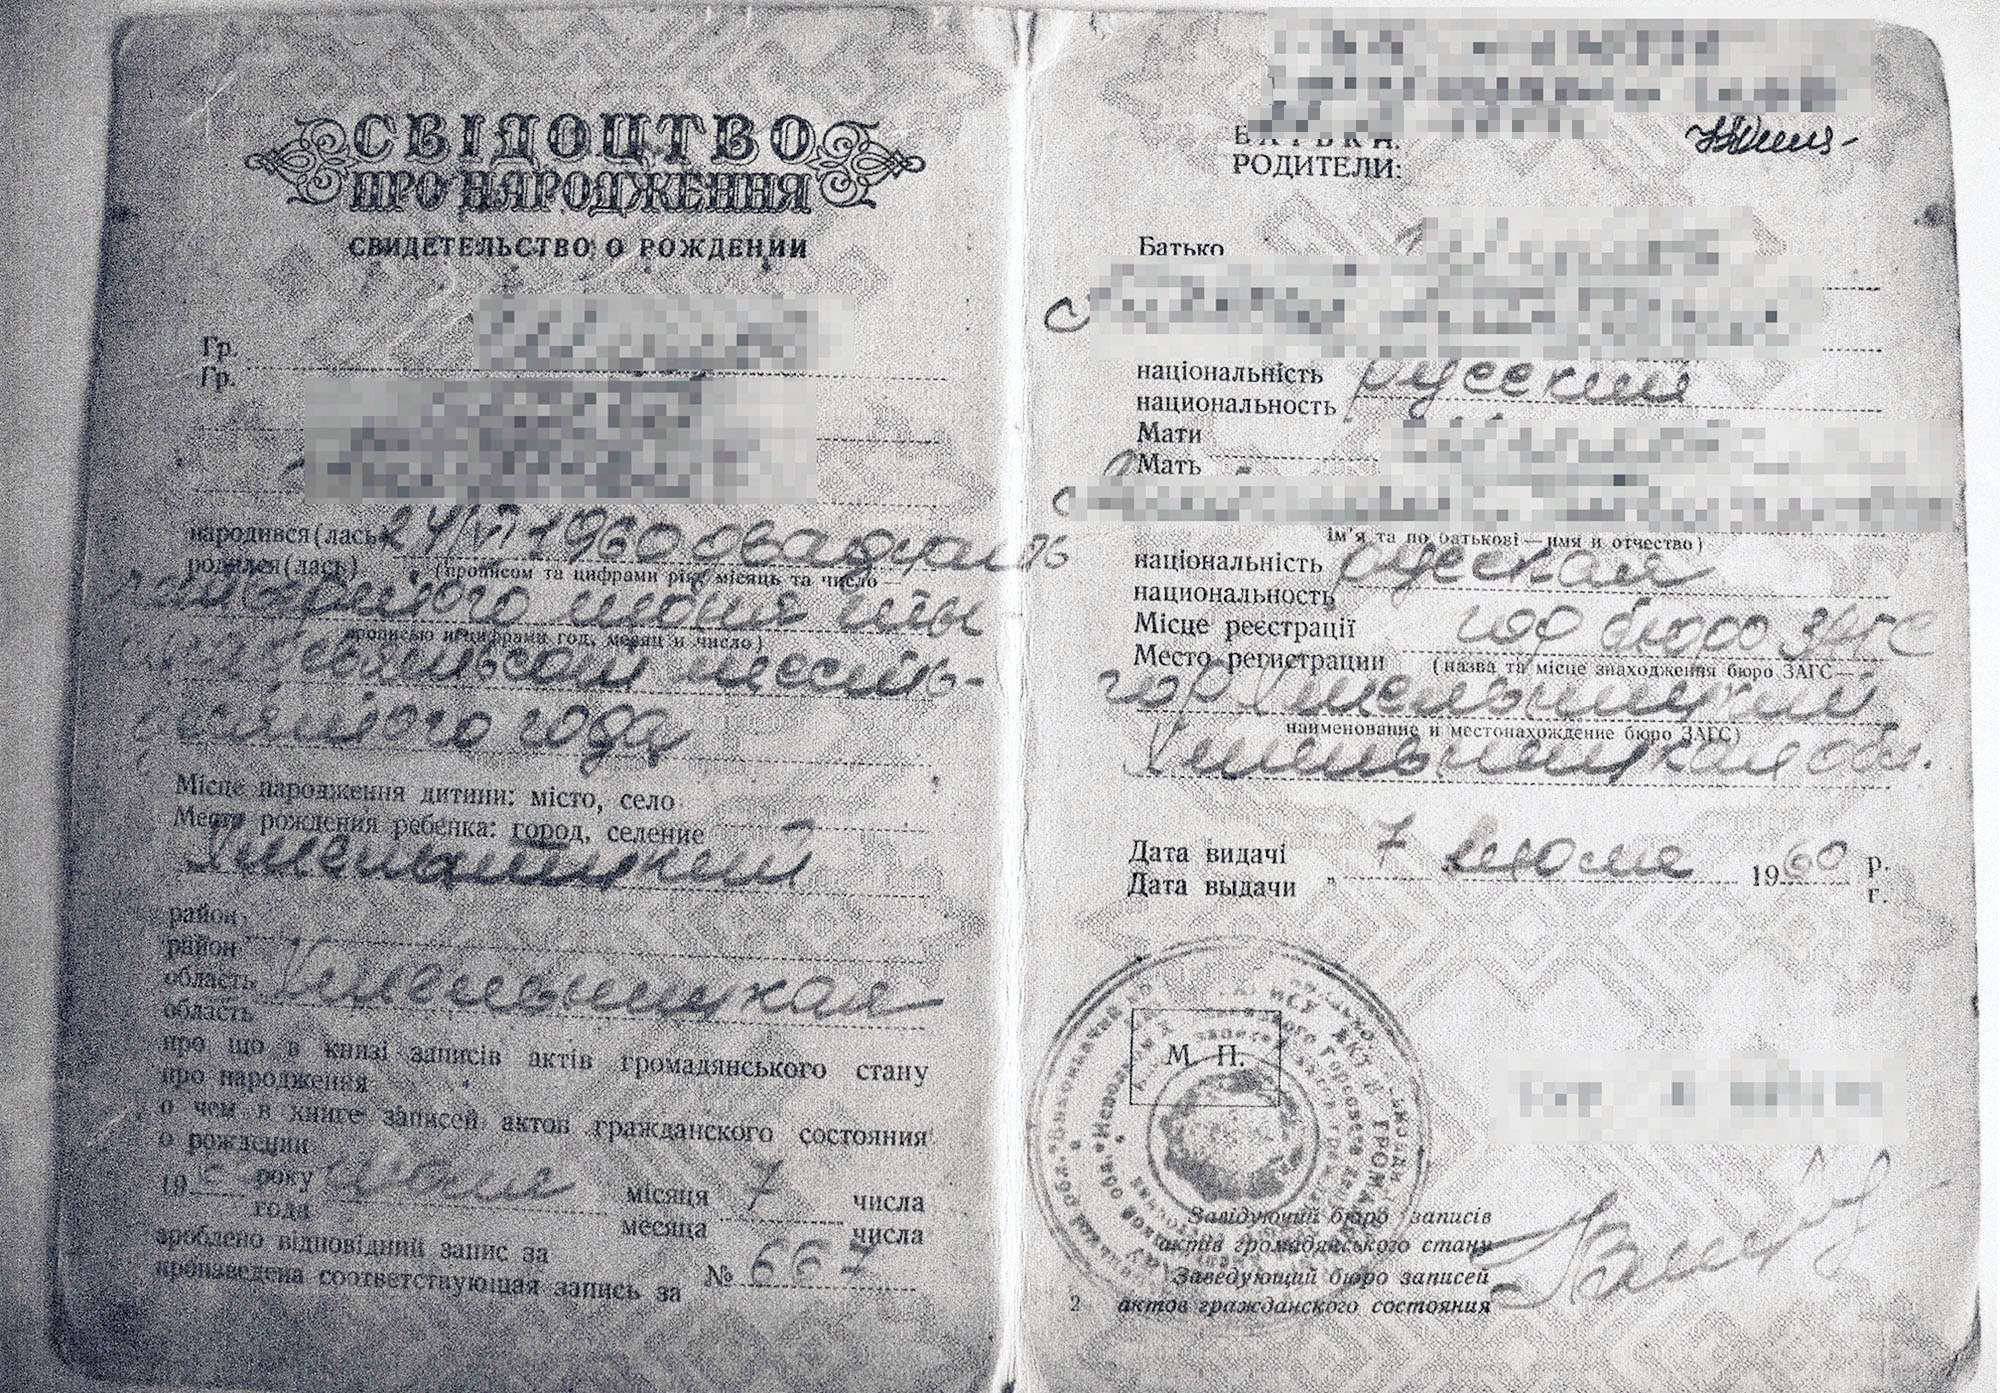 СВІДОЦТВО
ПРО НАРОДЖЕННЯ
СВИДЕТЕЛЬСТВО О РОЖДЕНИИ
Гр.
Гр.
народився(лась) 24/VI 1960 двадцать
родился(лась)
(прописом та цифрами рік, місяць та число —
четвертого июня тыся
прописью и цифрами год, месяц и число)
ча девятьсот шесть-
десятого года
Місце народження дитини: місто, село
Место рождения ребенка: город, селение
Хмельницкий
район
район
область Хмельницкая
область
про що в книзі записів актів громадянського стану
про народження
о чем в книге записей актов гражданского состояния
о рождении
19 року місяця 7 числа
года месяца числа
зроблено відповідний запис за
произведена соответствующая запись за № 667
БАТЬКИ:
РОДИТЕЛИ:
Батько
національність русский
национальность
Мати
Мать
ім'я та по батькові — имя и отчество)
національність русская
национальность
Місце реєстрації гор бюро ЗАГС
Место регистрации (назва та місце знаходження бюро ЗАГС —
гор Хмельницкий
наименование и местонахождение бюро ЗАГС)
Хмельницкая обл.
Дата видачі 7 июля 1960 р.
Дата выдачи " г.
М. П.
Завідуючий бюро записів
актів громадянського стану
Заведующий бюро записей
актов гражданского состояния
2